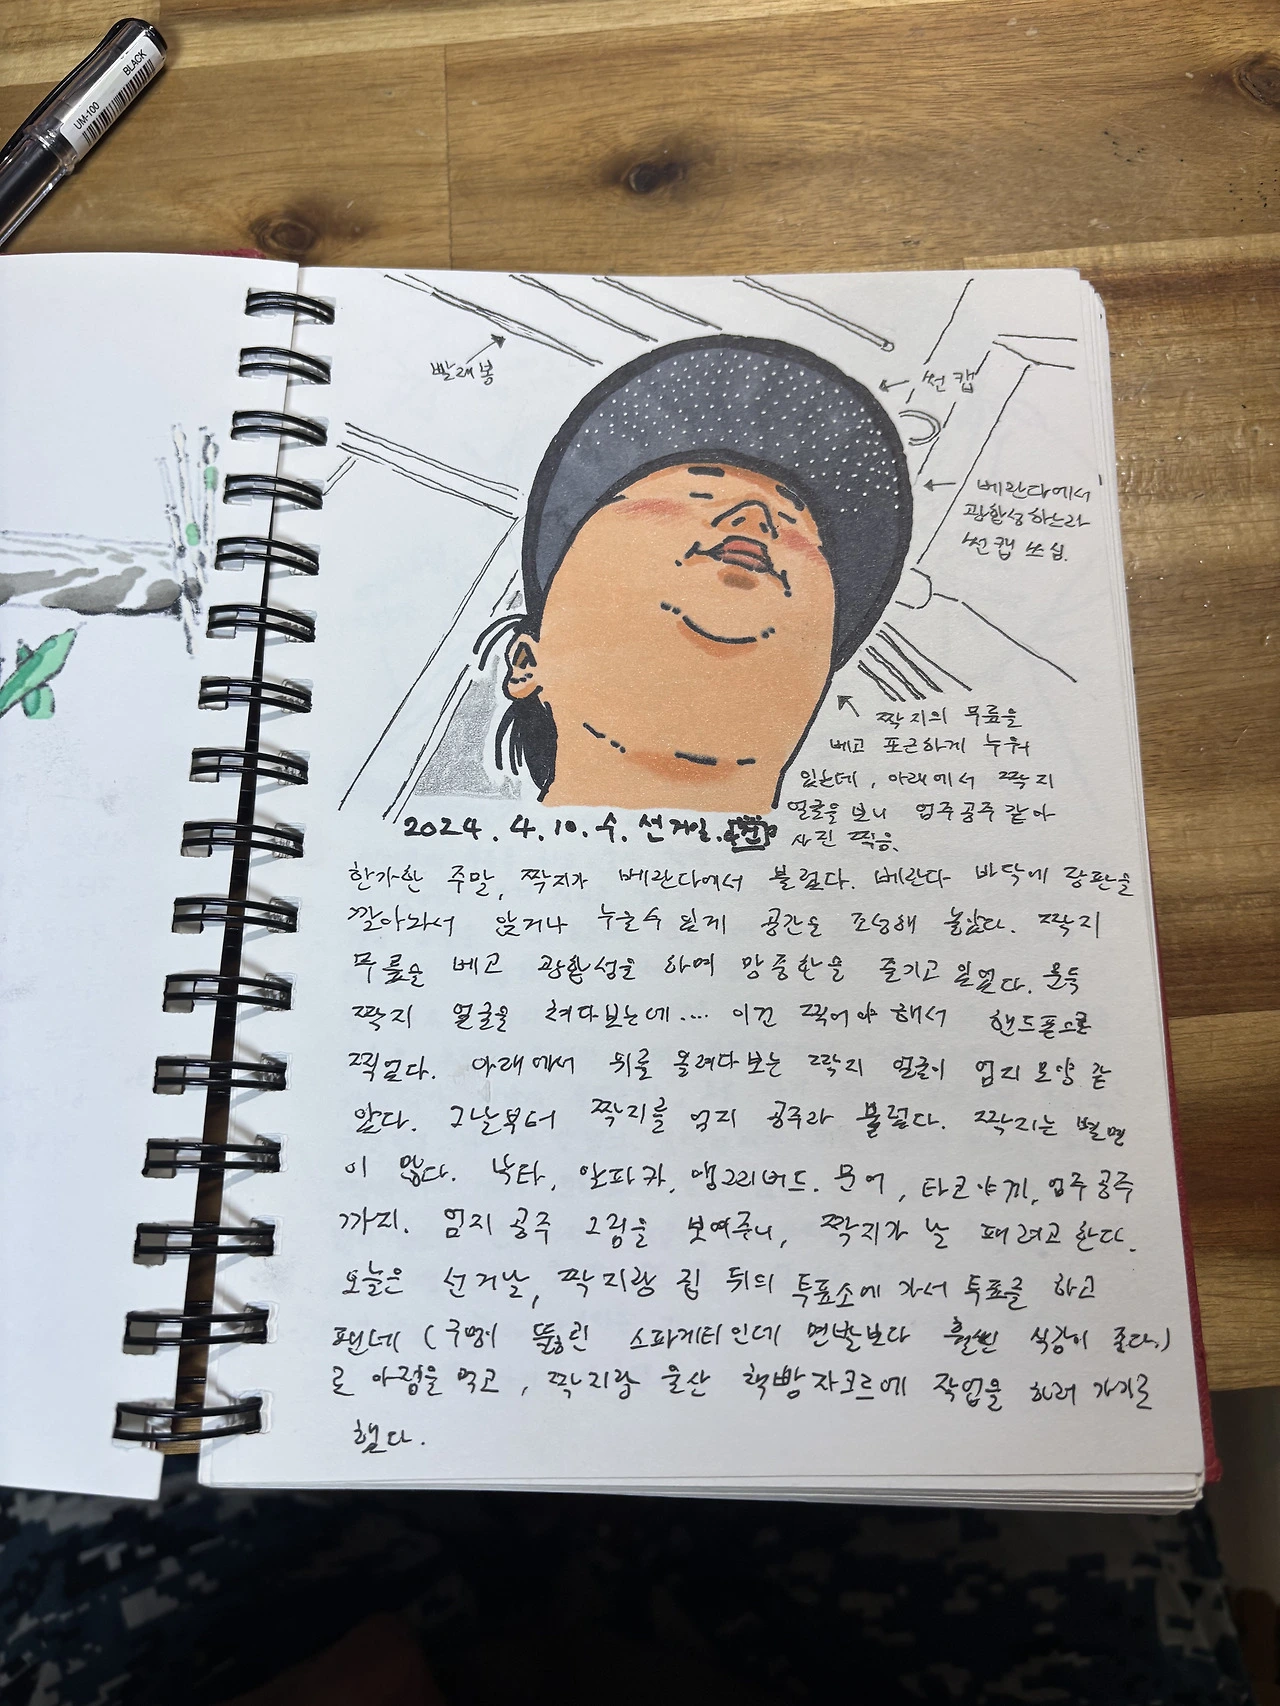 BLACK
UM-100
빨래봉
썬캡
베란다에서
광합성하느라
썬캡 쓰심.
짝지의 무릎을
베고 포근하게 누워
있는데, 아래에서 짝지
얼굴을 보니 엄주공주 같아
사진 찍음.
2024. 4. 10. 수. 선거일.
한가한 주말, 짝지가 베란다에서 불렀다. 베란다 바닥에 장판을
깔아놔서 앉거나 누울수 있게 공간을 조성해 놓았다. 짝지
무릎을 베고 광합성을 하며 망중한을 즐기고 있었다. 문득
짝지 얼굴을 쳐다보는데.... 이건 찍어야 해서 핸드폰으로
찍었다. 아래에서 위를 올려다보는 짝지 얼굴이 엄지 모양 같
았다. 그날부터 짝지를 엄지 공주라 불렀다. 짝지는 별명
이 많다. 낙타, 알파카, 앵그리버드. 문어, 타코야끼, 엄주공주
까지. 엄지 공주 그림을 보여주니, 짝지가 날 때려고 한다.
오늘은 선거날, 짝지랑 집 뒤의 투표소에 가서 투표를 하고
펜네 (구멍이 뚫린 스파게티인데 면발보다 훨씬 식감이 좋다.)
로 아점을 먹고, 짝지랑 울산 책빵자크르에 작업을 하러 가기로
했다.